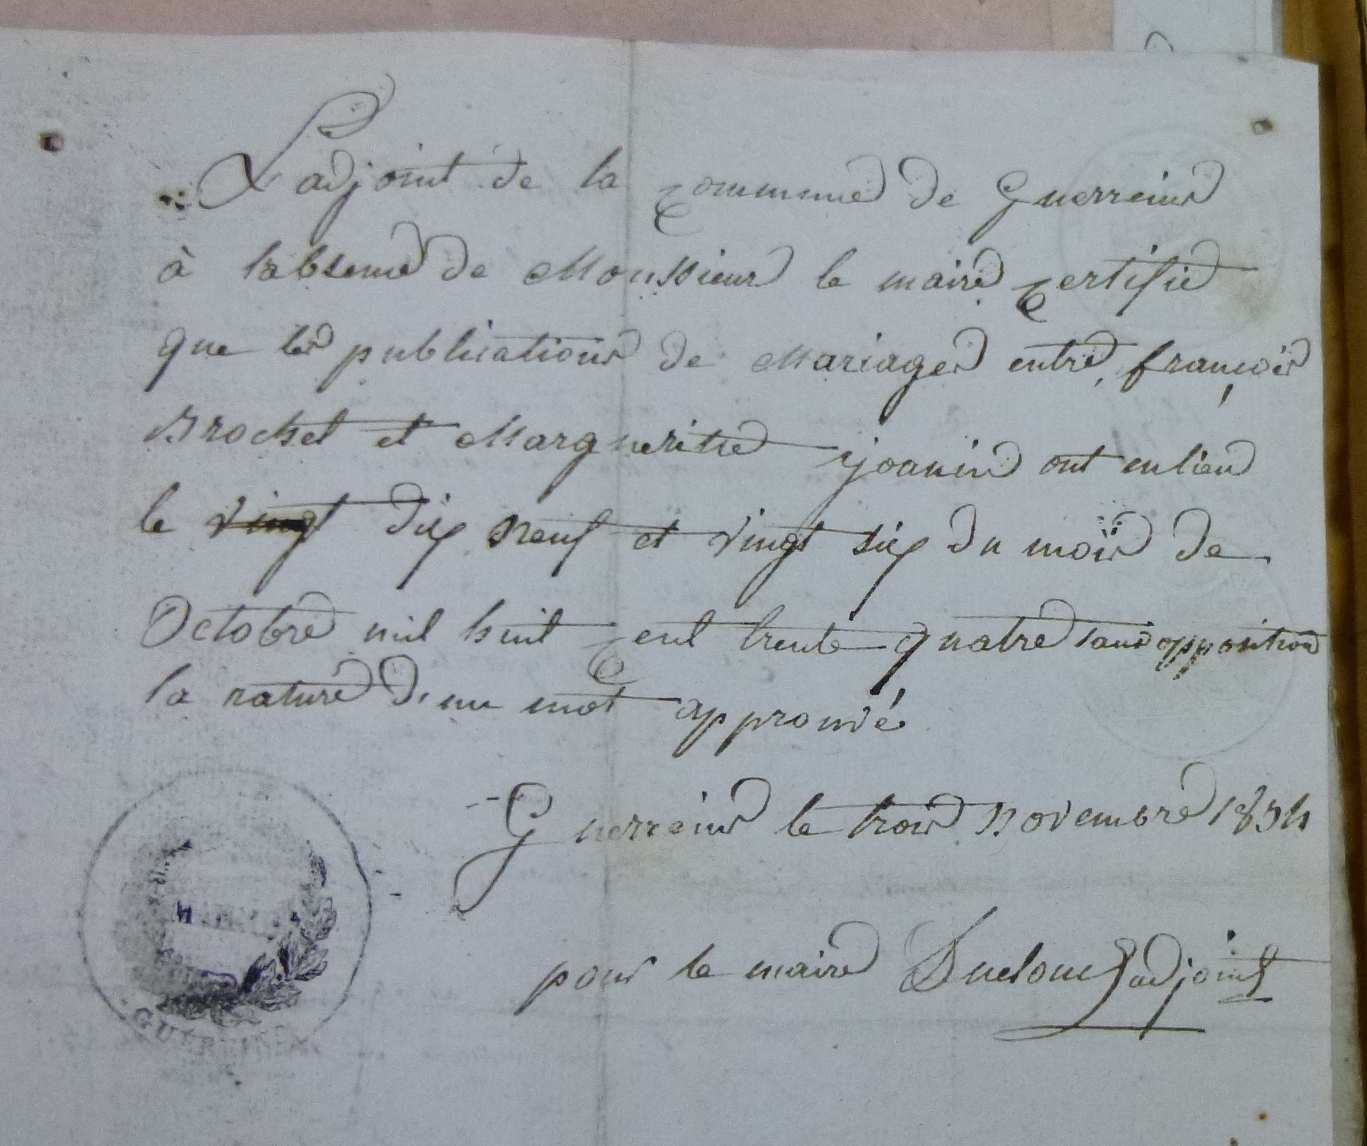 L'adjoint de la commune de Guerreins
à labsence de Monsieur le maire certifie
que les publications de Mariages entre françois
Brochet et Margueritte joanin ont eu lieu
le vingt dix neuf et vingt six du mois de
Octobre mil huit cent trente quatre sans opposition
la rature d'un mot approuvé
Guerreins le trois novembre 1834
pour le maire Ducloux adjoint
GUERREINS